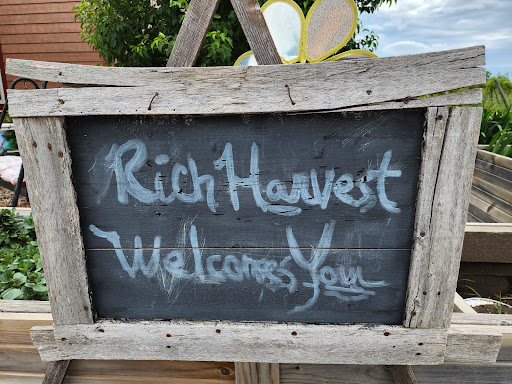 Rich Harvest
Welcomes You